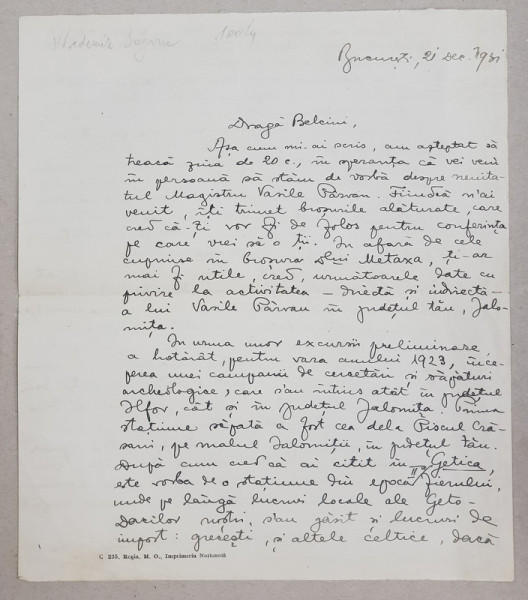 București, 21 Dec. 1931
Dragă Belcini,
Așa cum mi-ai scris, am așteptat să
treacă ziua de 20 c., în speranța că vei veni
în persoană să stăm de vorbă despre neuita-
tul Magistru Vasile Pârvan. Fiindcă n'ai
venit, îți trimet broșurile alăturate, care
cred că-ți vor fi de folos pentru conferința
pe care vrei să o ții. In afară de cele
cuprinse în broșura dlui Metaxa, ți-ar
mai fi utile, cred, următoarele date cu
privire la activitatea – directă și indirectă –
a lui Vasile Pârvan în județul tău, Jalo-
mița.
In urma unor excursii preliminare
a hotărât, pentru vara anului 1923, ince-
perea unei campanii de cercetări și săpături
archeologice, care s'au întins atât în județul
Ilfov, cât și în județul Jalomița. Prima
stațiune săpată a fost cea dela Piscul Cră-
sani, pe malul Jalomiții, în județul tău.
După cum cred că ai citit în Getica,
este vorba de o stațiune din epoca II a fierului,
unde pe lângă lucruri locale ale Geto-
Dacilor noștri, s'au găsit și lucruri de
import: grecești, și altele celtice, dacă
C 235, Regia, M. O., Imprimeria Națională